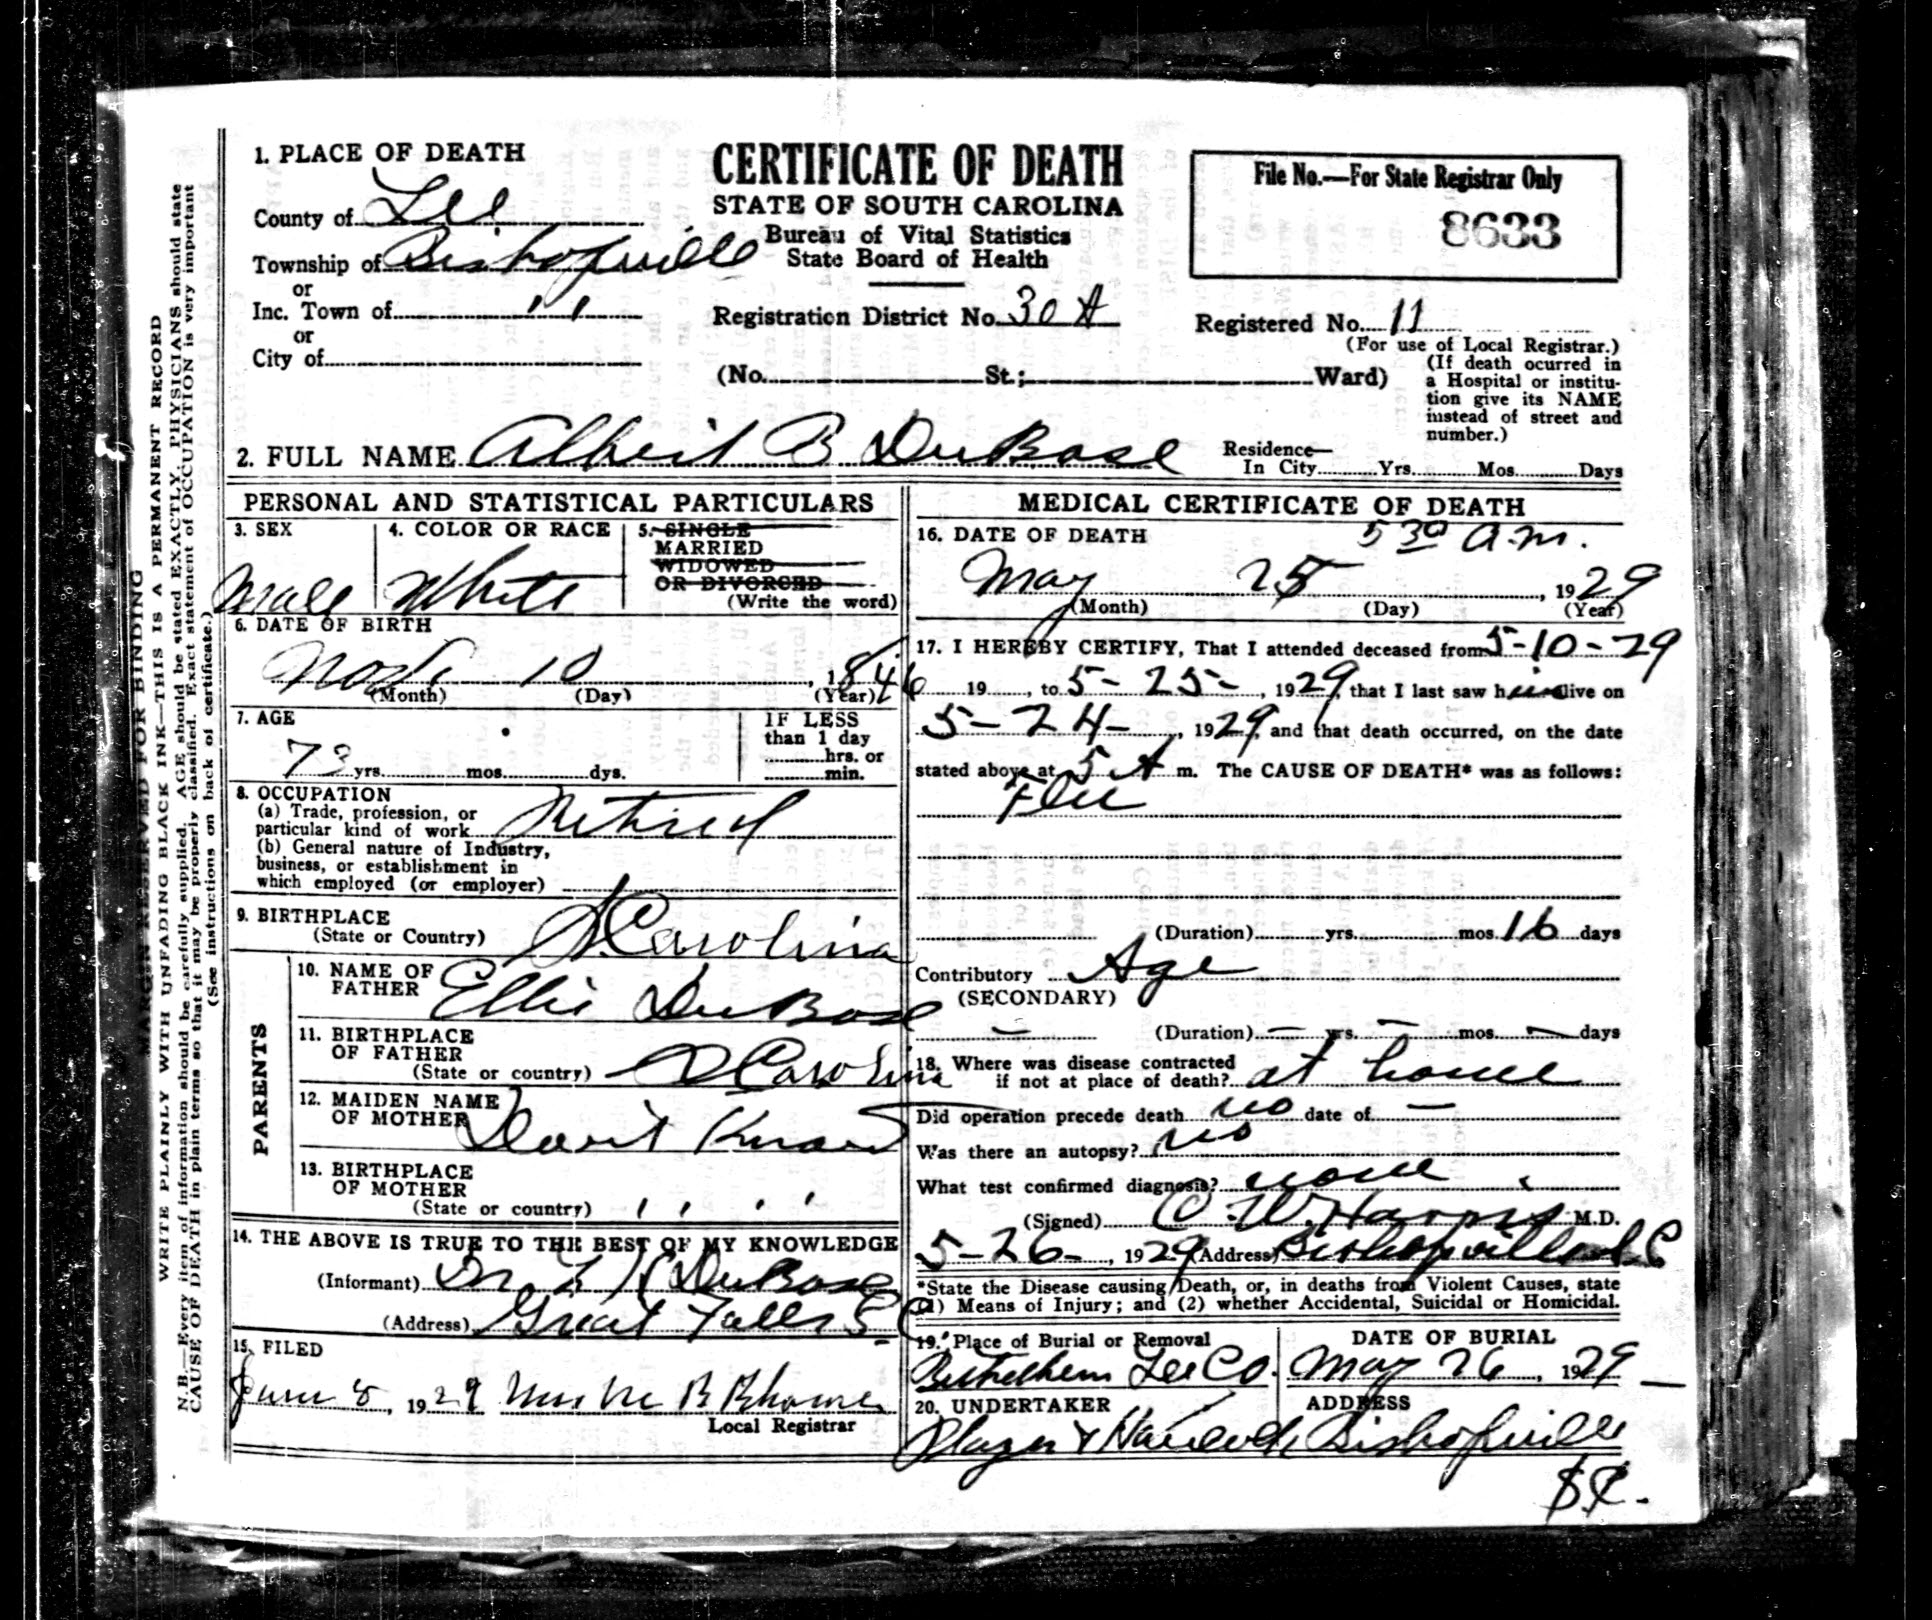 1. PLACE OF DEATH
County of Lee
Township of Bishopville
or
Inc. Town of " 
or
City of
CERTIFICATE OF DEATH
STATE OF SOUTH CAROLINA
Bureau of Vital Statistics
State Board of Health
Registration District No. 30 A
(No. St.; Ward)
File No.—For State Registrar Only
8633
Registered No. 11
(For use of Local Registrar.)
(If death ocurred in
a Hospital or institu-
tion give its NAME
instead of street and
number.)
2. FULL NAME Albert B DuBose
Residence—
In City Yrs. Mos. Days
PERSONAL AND STATISTICAL PARTICULARS
3. SEX
Male
4. COLOR OR RACE
White
5. SINGLE
MARRIED
WIDOWED
OR DIVORCED
(Write the word)
6. DATE OF BIRTH
10, 1846
(Month) (Day) (Year)
7. AGE
73 yrs. mos. dys.
IF LESS
than 1 day
hrs. or
min.
8. OCCUPATION
(a) Trade, profession, or
particular kind of work Retired
(b) General nature of Industry,
business, or establishment in
which employed (or employer)
9. BIRTHPLACE
(State or Country) S. Carolina
PARENTS
10. NAME OF
FATHER Ellis DuBose
11. BIRTHPLACE
OF FATHER
(State or country) S Carolina
12. MAIDEN NAME
OF MOTHER Don't Know
13. BIRTHPLACE
OF MOTHER
(State or country) " "
14. THE ABOVE IS TRUE TO THE BEST OF MY KNOWLEDGE
(Informant) DuBose
(Address) Great Falls S C
15. FILED
June 8, 1929 B Rhame
Local Registrar
MEDICAL CERTIFICATE OF DEATH
16. DATE OF DEATH 5 30 a.m.
May 25, 1929
(Month) (Day) (Year)
17. I HEREBY CERTIFY, That I attended deceased from 5-10-29
19, to 5-25-, 1929, that I last saw him alive on
5-24-, 1929, and that death occurred, on the date
stated above at 5 A m. The CAUSE OF DEATH* was as follows:
Flu
(Duration) yrs. mos. 16 days
Contributory Age
(SECONDARY)
— (Duration) — yrs. — mos. — days
18. Where was disease contracted
if not at place of death? at home
Did operation precede death no date of —
Was there an autopsy? no
What test confirmed diagnosis? none
(Signed) C. W. Harris M.D.
5-26-, 1929 (Address) Bishopville S C
*State the Disease causing Death, or, in deaths from Violent Causes, state
(1) Means of Injury; and (2) whether Accidental, Suicidal or Homicidal.
19. Place of Burial or Removal
Bethlehem Lee Co.
DATE OF BURIAL
May 26, 1929
20. UNDERTAKER
& Hancock
ADDRESS
Bishopville
S.C.
MARGIN RESERVED FOR BINDING
WRITE PLAINLY WITH UNFADING BLACK INK—THIS IS A PERMANENT RECORD
N. B.—Every item of information should be carefully supplied. AGE should be stated EXACTLY. PHYSICIANS should state
CAUSE OF DEATH in plain terms so that it may be properly classified. Exact statement of OCCUPATION is very important
(See instructions on back of certificate.)